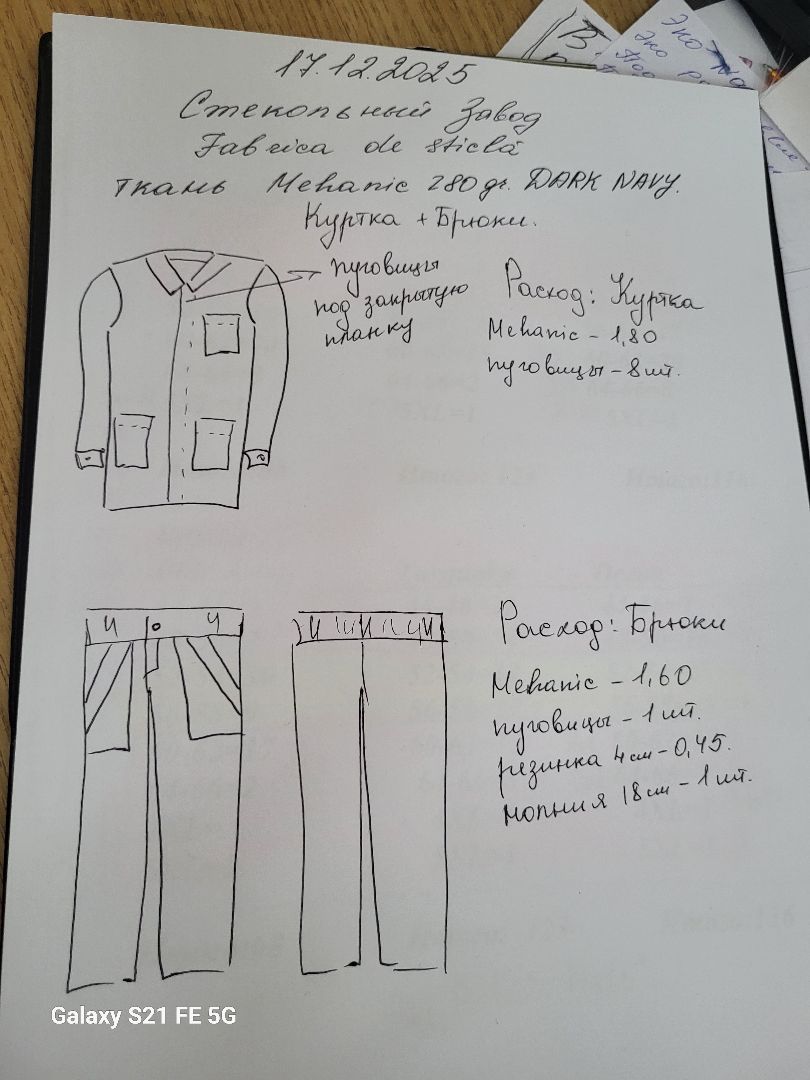 17.12.2025
Стекольный Завод
Fabrica de sticlă
ткань Mehanic 280 gr. DARK NAVY.
Куртка + Брюки.
пуговицы
под закрытую
планку
Расход: Куртка
Mehanic - 1,80
пуговицы - 8 шт.
Расход: Брюки
Mehanic - 1,60
пуговицы - 1 шт.
резинка 4 см - 0,45.
молния 18 см - 1 шт.
Galaxy S21 FE 5G